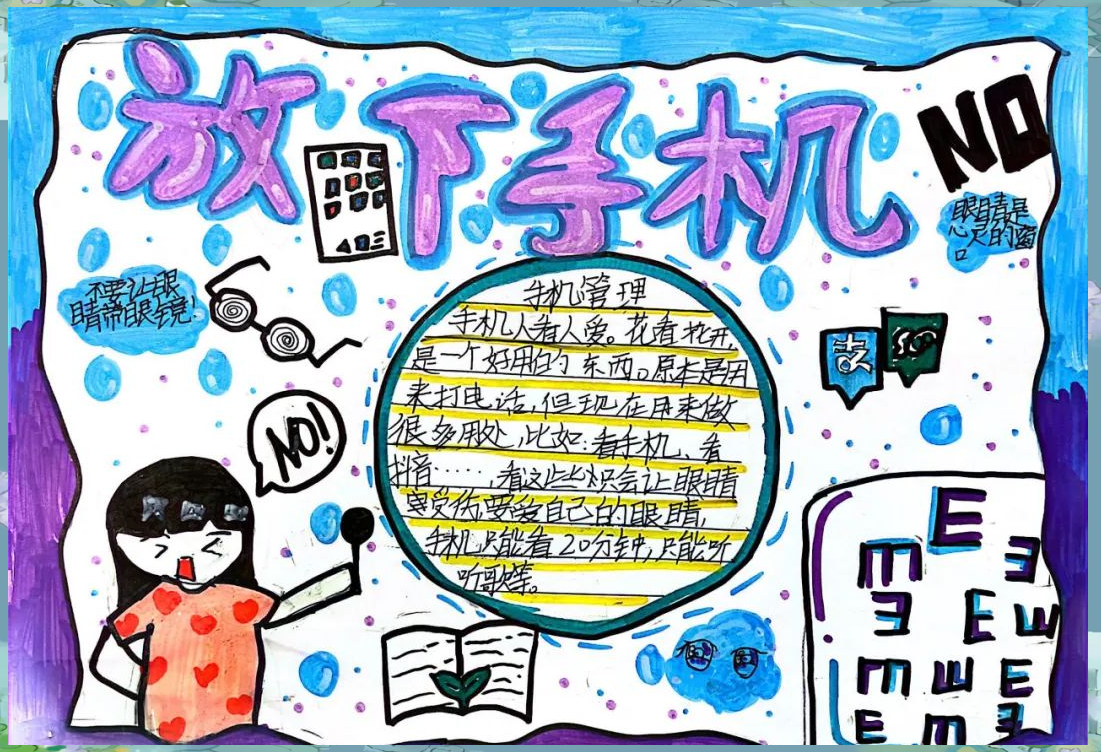 放下手机
NO
眼睛是
心灵的窗
口
不要让眼
睛带眼镜!
NO!
支
手机管理
手机人看人爱。花看花开,
是一个好用的东西。原本是用
来打电话,但现在用来做
很多用处,比如:看手机、看
抖音……,看这些只会让眼睛
受伤,要爱自己的眼睛,
手机只能看20分钟,只能听
听歌等。
E
m E
E W
m W E
E m